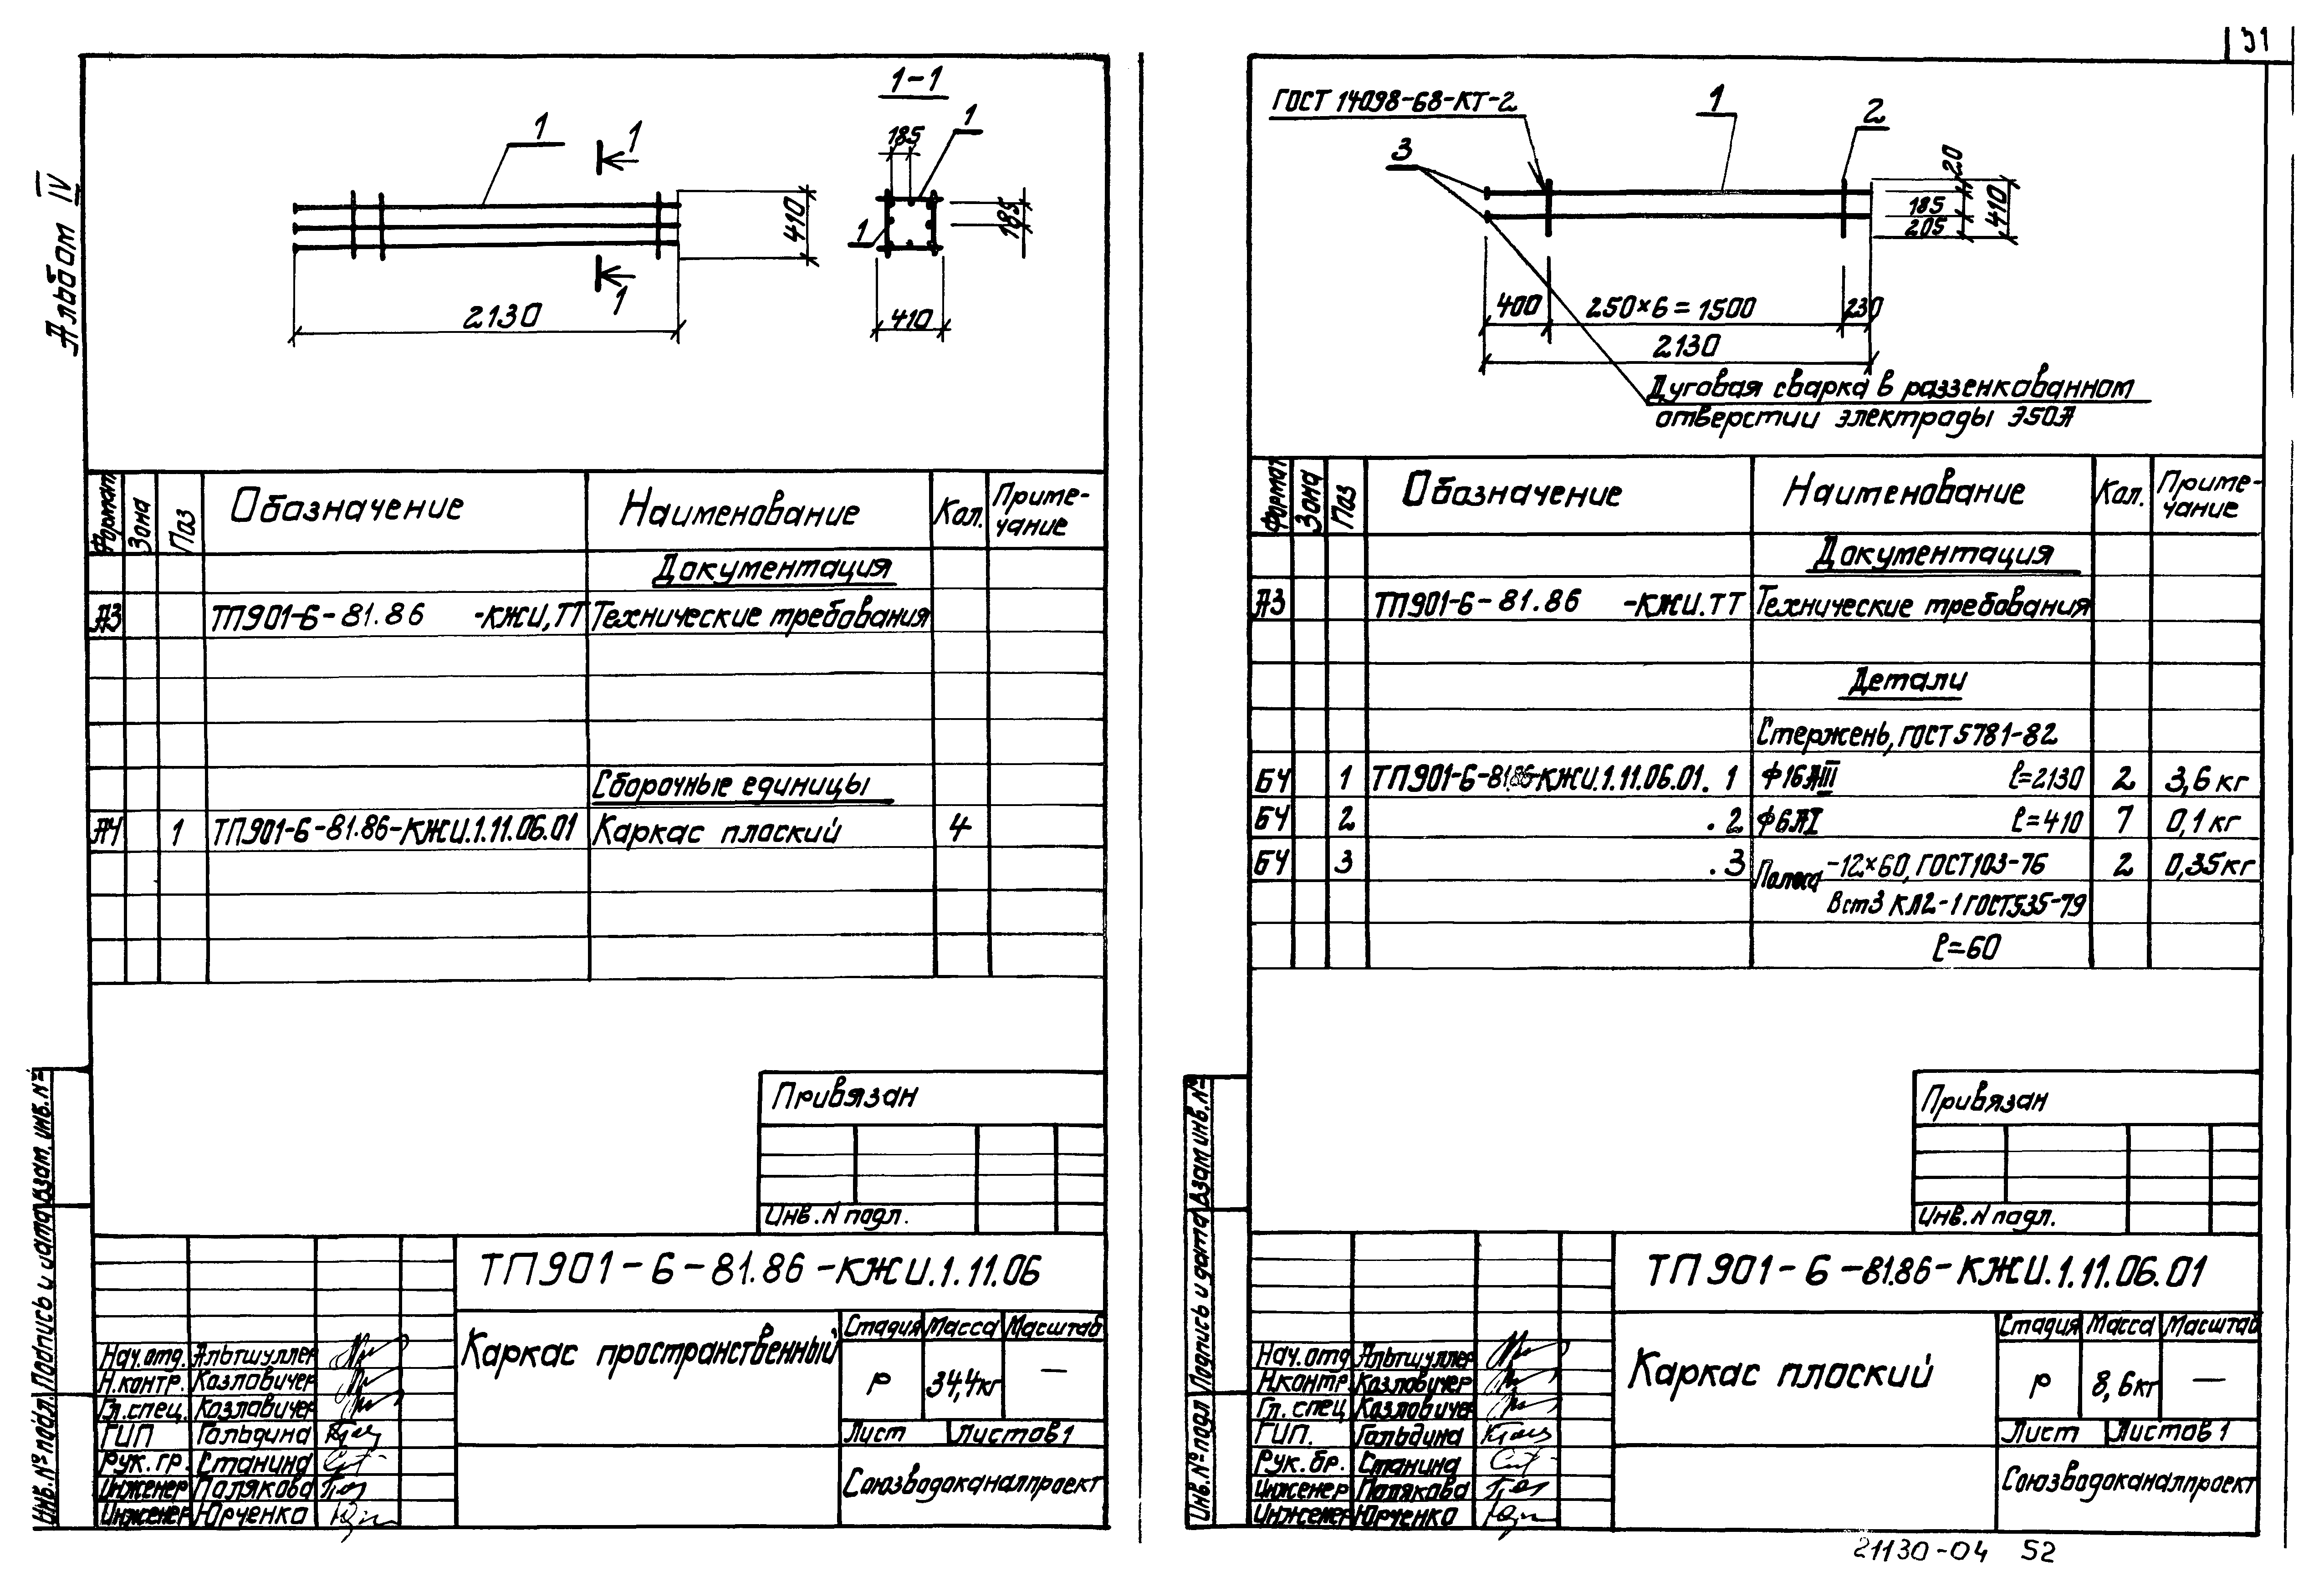 Альбом IV
1
1
1
410
2130
1-1
185
1
1
185
410
Формат Зона Поз Обозначение Наименование Кол. Приме-
чание
Документация
А3 ТП901-6-81.86 -КЖИ,ТТ Технические требования
Сборочные единицы
А4 1 ТП901-6-81.86-КЖИ.1.11.06.01 Каркас плоский 4
Привязан
Инв.N подл.
ТП901-6-81.86-КЖИ.1.11.06
Каркас пространственный
Стадия Масса Масштаб
Р 34,4кг —
Лист Листов 1
Союзводоканалпроект
Нач.отд. Альтшуллер
Н.контр. Козловичер
Гл.спец. Козловичер
ГИП Гольдина
Рук.гр. Станина
Инженер Полякова
Инженер Юрченко
Инв.№ подл. Подпись и дата Взам. инв.№
51
ГОСТ 14098-68-КТ-2
1
2
3
20
185
205
410
400 250×6=1500 230
2130
Дуговая сварка в раззенкованном
отверстии электроды Э50А
Формат Зона Поз Обозначение Наименование Кол. Приме-
чание
Документация
А3 ТП901-6-81.86 -КЖИ.ТТ Технические требования
Детали
Стержень, ГОСТ 5781-82
БЧ 1 ТП901-6-81.86-КЖИ.1.11.06.01. 1 Ф16АIII ℓ=2130 2 3,6 кг
БЧ 2 .2 Ф6АI ℓ=410 7 0,1 кг
БЧ 3 .3 Полоса -12×60, ГОСТ103-76 2 0,35кг
Вст3 КП2-1 ГОСТ535-79
ℓ=60
Привязан
Инв.N подл.
ТП901-6-81.86-КЖИ.1.11.06.01
Каркас плоский
Стадия Масса Масштаб
Р 8,6кг —
Лист Листов 1
Союзводоканалпроект
Нач.отд Альтшуллер
Н.контр. Козловичер
Гл.спец Козловичер
ГИП. Гольдина
Рук.бр. Станина
Инженер Полякова
Инженер Юрченко
Инв.№ подл Подпись и дата Взам инв.№
21130-04 52